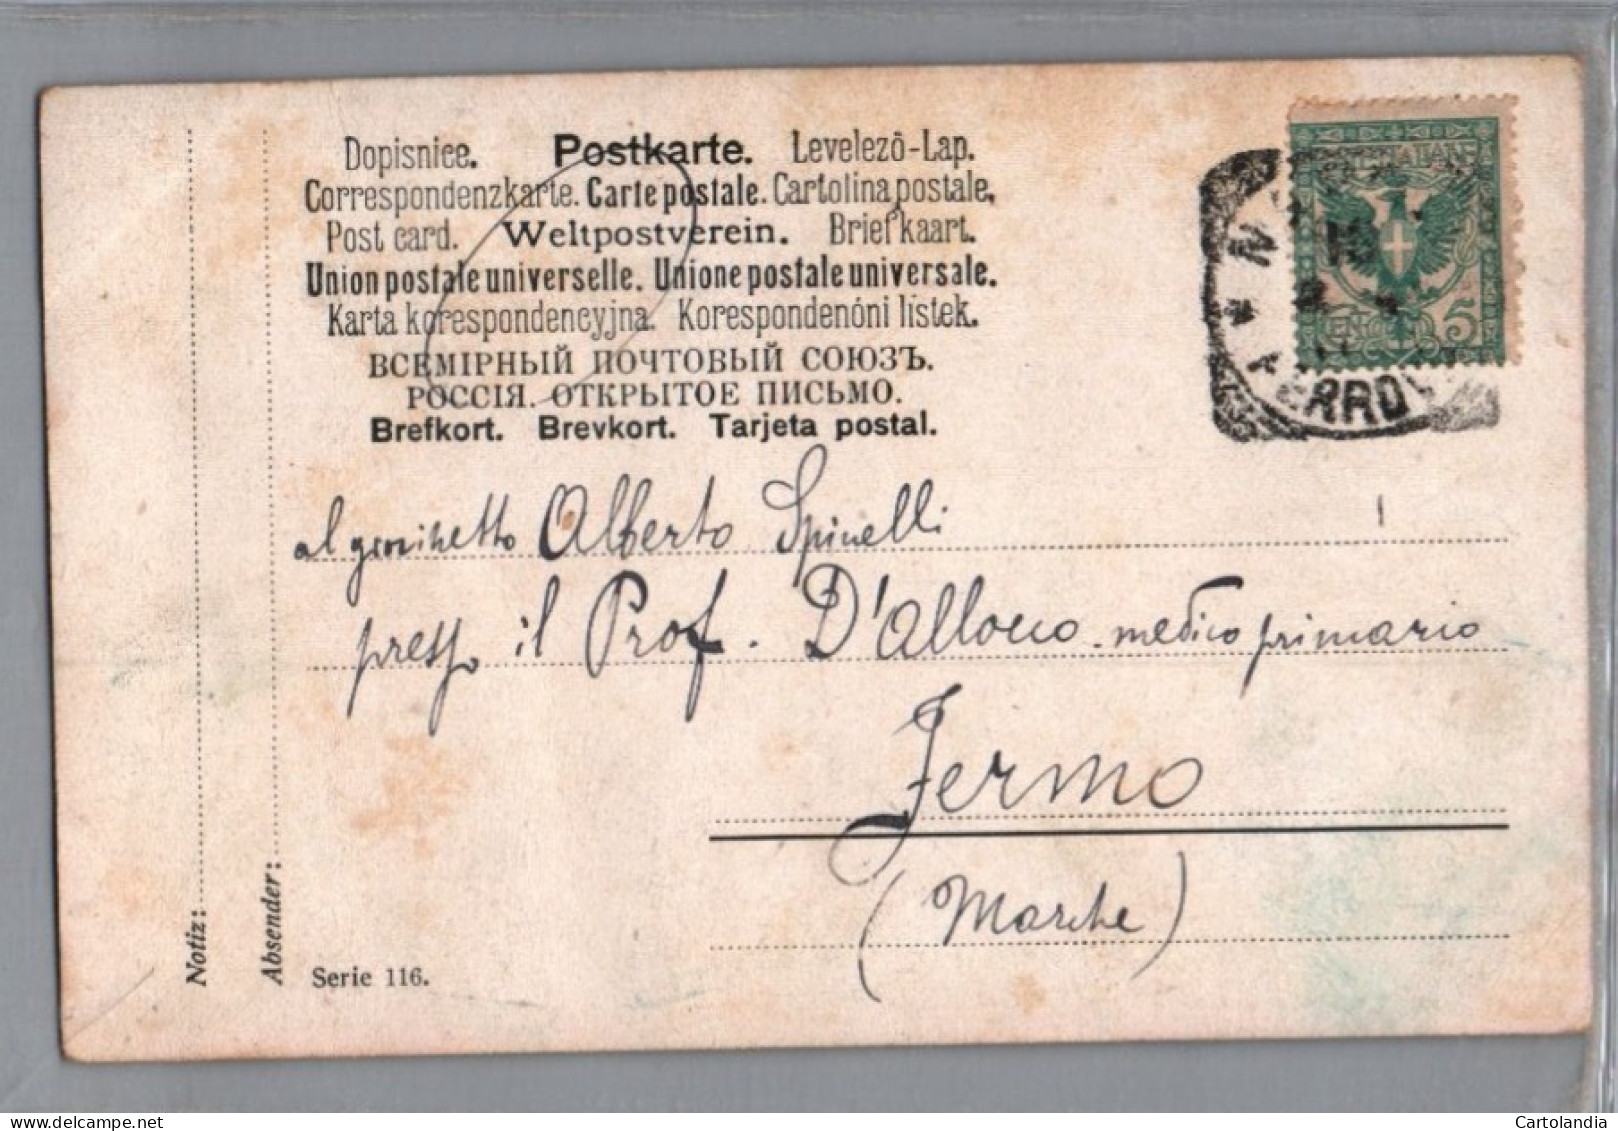 Dopisnice. Postkarte. Levelezö-Lap.
Correspondenzkarte. Carte postale. Cartolina postale.
Post card. Weltpostverein. Briefkaart.
Union postale universelle. Unione postale universale.
Karta korespondencyjna. Korespondenóni lístek.
ВСЕМІРНЫЙ ПОЧТОВЫЙ СОЮЗЪ.
РОССІЯ. ОТКРЫТОЕ ПИСЬМО.
Brefkort. Brevkort. Tarjeta postal.
5
al Alberto Spinelli
presso il Prof. D'Allocco medico primario
Fermo
(Marche)
Notiz:
Absender:
Serie 116.
Cartolandia